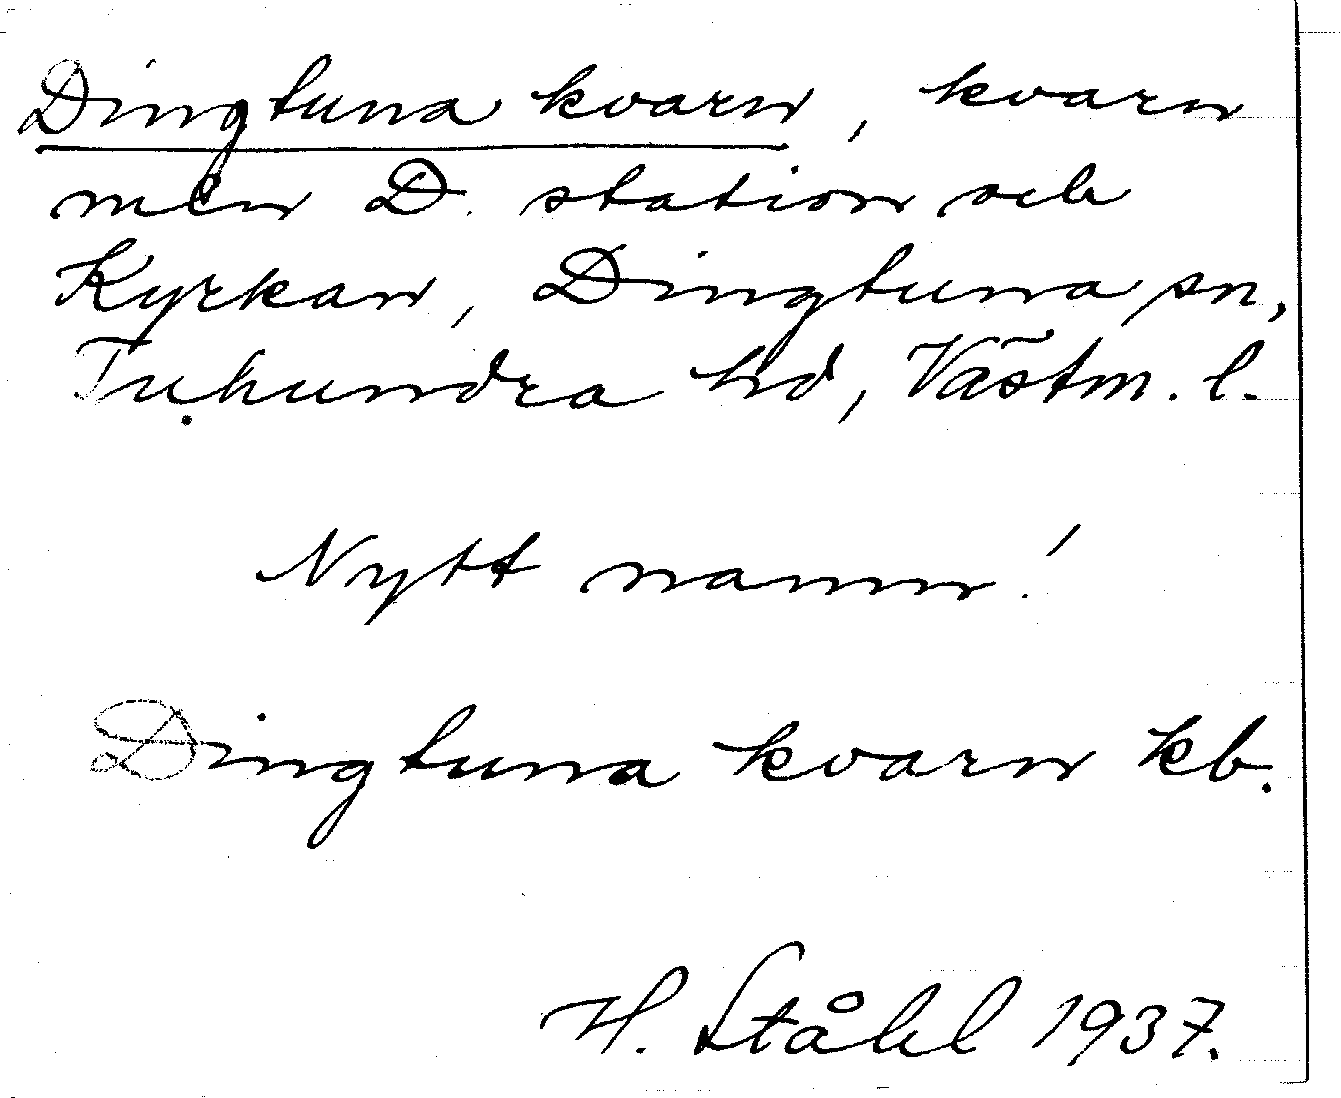 Dingtuna kvarn, kvarn
mln D. station och
Kyrkan, Dingtuna sn,
Tuhundra hd, Västm. l.
Nytt namn!
Dingtuna kvarn kb.
H. Ståhl 1937.